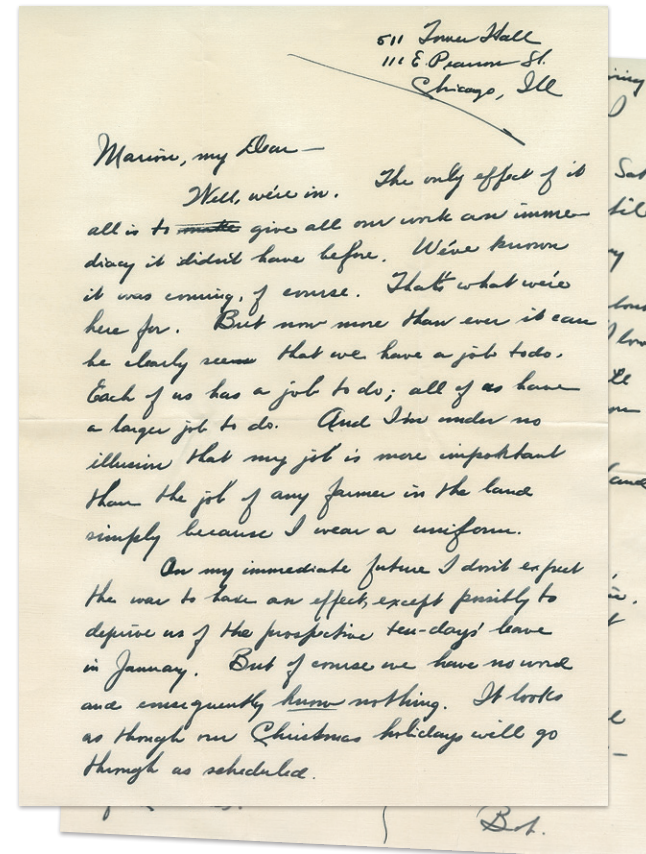 511 Tower Hall
111 E. Pearson St.
Chicago, Ill
Marion, my Dear—
Well, we're in. The only effect of it
all is to make give all our work an imme-
diacy it didn't have before. We've known
it was coming, of course. That's what we're
here for. But now more than ever it can
be clearly seen that we have a job to do.
Each of us has a job to do; all of us have
a larger job to do. And I'm under no
illusion that my job is more important
than the job of any farmer in the land
simply because I wear a uniform.
On my immediate future I don't expect
the war to have an effect, except possibly to
deprive us of the prospective ten-days' leave
in January. But of course we have no word
and consequently know nothing. It looks
as though our Christmas holidays will go
through as scheduled.
Bob.